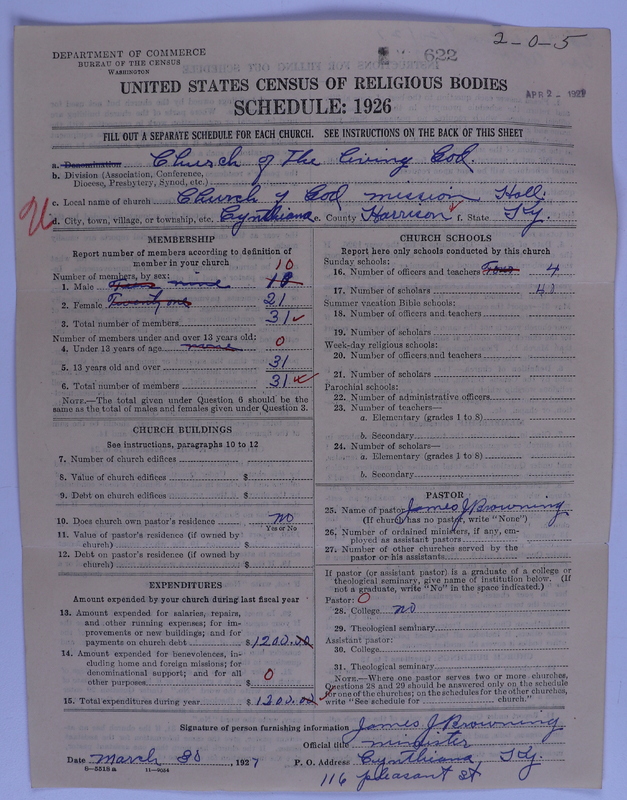 2-0-5
622
DEPARTMENT OF COMMERCE
BUREAU OF THE CENSUS
WASHINGTON
APR 2 - 192
UNITED STATES CENSUS OF RELIGIOUS BODIES
SCHEDULE: 1926
FILL OUT A SEPARATE SCHEDULE FOR EACH CHURCH. SEE INSTRUCTIONS ON THE BACK OF THIS SHEET
a. Denomination Church of The living God.
b. Division (Association, Conference,
Diocese, Presbytery, Synod, etc.)
c. Local name of church Church of God mission Hall.
d. City, town, village, or township, etc. Cynthiana e. County Harrison f. State Ky.
MEMBERSHIP
Report number of members according to definition of
member in your church
10
Number of members, by sex:
1. Male nine 10
2. Female Twenty one 21
3. Total number of members 31
Number of members under and over 13 years old:
4. Under 13 years of age none 0
5. 13 years old and over 31
6. Total number of members 31
NOTE.—The total given under Question 6 should be
same as the total of males and females given under Question 3.
CHURCH BUILDINGS
See instructions, paragraphs 10 to 12
7. Number of church edifices
8. Value of church edifices $
9. Debt on church edifices $
10. Does church own pastor's residence no
Yes or No
11. Value of pastor's residence (if owned by
church) $
12. Debt on pastor's residence (if owned by
church) $
EXPENDITURES
Amount expended by your church during last fiscal year
13. Amount expended for salaries, repairs,
and other running expenses; for im-
provements or new buildings; and for
payments on church debt $1200.00
14. Amount expended for benevolences, in-
cluding home and foreign missions; for
denominational support; and for all
other purposes $ 0
15. Total expenditures during year $1200.00
CHURCH SCHOOLS
Report here only schools conducted by this church
Sunday schools:
16. Number of officers and teachers Four 4
17. Number of scholars
Summer vacation Bible schools:
18. Number of officers and teachers
19. Number of scholars
Week-day religious schools:
20. Number of officers and teachers
21. Number of scholars
Parochial schools:
22. Number of administrative officers
23. Number of teachers—
a. Elementary (grades 1 to 8)
b. Secondary
24. Number of scholars—
a. Elementary (grades 1 to 8)
b. Secondary
PASTOR
25. Name of pastor James J Browning
(If church has no pastor, write "None")
26. Number of ordained ministers, if any, em-
ployed as assistant pastors
27. Number of other churches served by the
pastor or his assistants
If pastor (or assistant pastor) is a graduate of a college or
theological seminary, give name of institution below. (If
not a graduate, write "No" in the space indicated.)
Pastor: 0
28. College no
29. Theological seminary
Assistant pastor:
30. College
31. Theological seminary
NOTE.—Where one pastor serves two or more churches,
Questions 28 and 29 should be answered only on the schedule
for one of the churches; on the schedules for the other churches,
write "See schedule for church."
Signature of person furnishing information James J Browning
Official title minister
Date March 30, 1927 P. O. Address Cynthiana, Ky.
6-5518a 11-9024
116 pleasant st